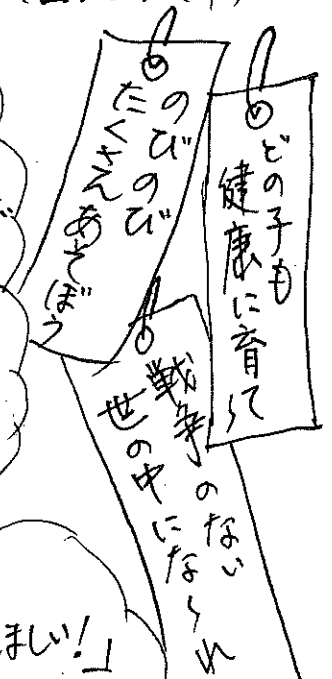 どの子も
健康に育て
のびのび
たくさんあそぼう
戦争のない
世の中になられ
ほしい!」